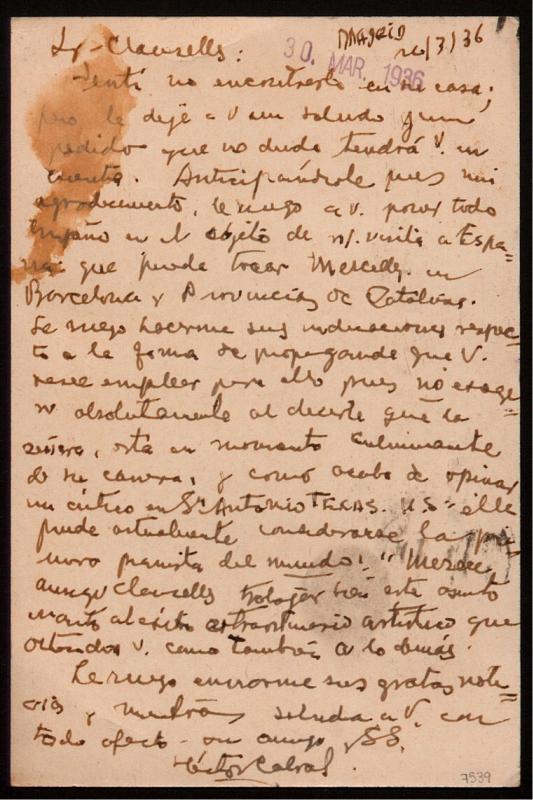 MADRID
26/3/36
30. MAR. 1936
Sr. Clausells:
Sentí no encontrarlo en su casa;
pero le dejé a V un saludo y un
pedido que no dudo tendrá V. en
cuenta. Anticipándole pues mi
agradecimiento, le ruego a V. poner todo
empeño en el objeto de n/. visita a Espa=
ña: que pueda tocar Mercedes en
Barcelona y Provincias de Cataluña.
Le ruego hacerme sus indicaciones respec=
to a la forma de propaganda que V.
desee emplear para ello pues no exage=
ro absolutamente al decirle que la
señora, está en momento culminante
de su carrera, y como acaba de opinar
un crítico en Sn ANTONIO TEXAS. U.S "ella
puede actualmente considerarse la pri=
mera pianista del mundo!" Merece
amigo Clausells trabajar bien este asunto
tanto al éxito extraordinario artístico que
V. como también a lo demás.
Le ruego enviarme sus gratas noti=
cias y mientras saluda a V. con
todo afecto su amigo y SS.
Héctor Cabral
7539